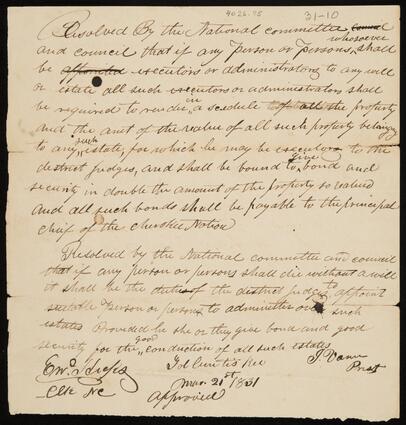 4026.95
31-10
Resolved By the National committee
whosoever
and council that if any Person or Persons, shall
be appointed executors or administrators to any will
or estate all such executors or administrators shall
be required to render in a scedule of all the property
and the amt of the value of all such property belonging
to any such estate, for which he may be executors to the
destrict judges, and shall be bound to give bond and
security in double the amount of the property so valued
And all such bonds shall be payable to the principal
chief of the Cherokee Nation
Resolved by the National committee and council
that if any person or persons shall die without a will
it shall be the duties of the destrict judges to appoint
suitable Person or persons to administer over such
estates Provided he she or they give bond and good
security for the good conduction of all such estates
J. Vann
Prest
Clk NC
Approved